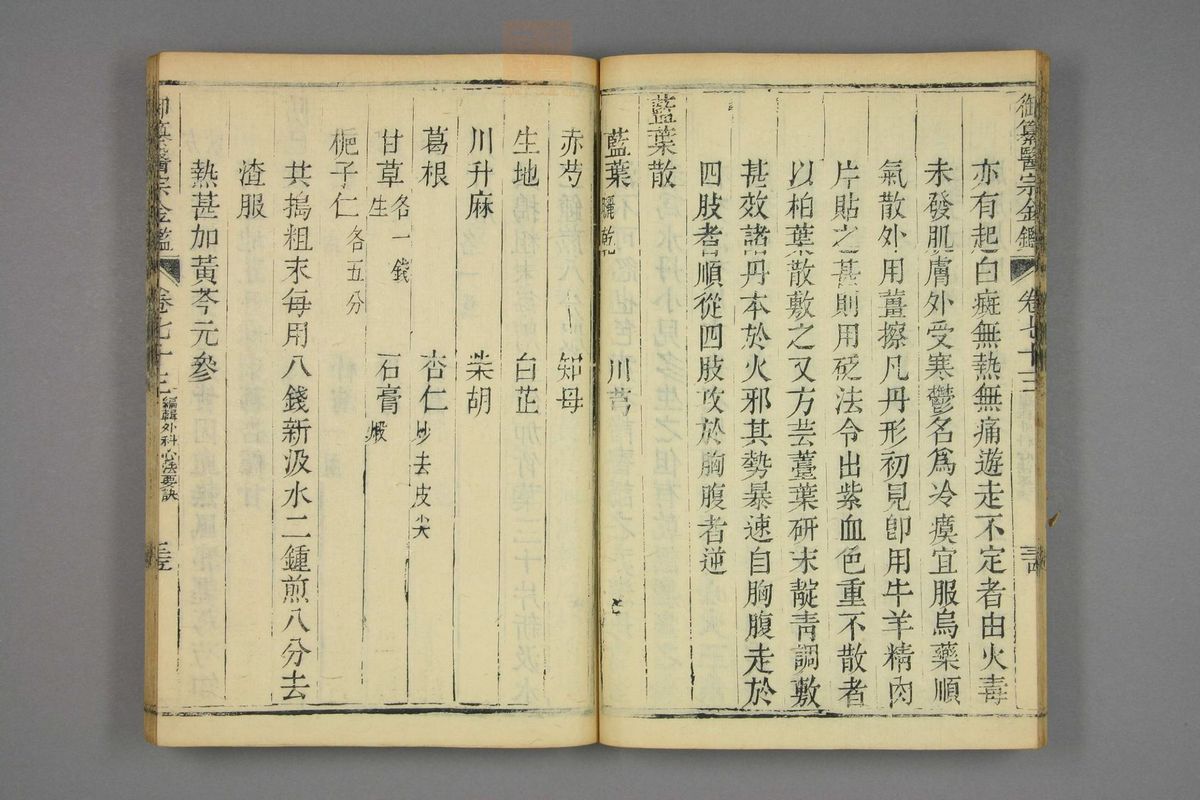 御纂醫宗金鑑 卷七十三 三四
亦有起白癍無熱無痛遊走不定者由火毒
未發肌膚外受寒鬱名為冷瘼宜服烏藥順
氣散外用薑擦凡丹形初見卽用牛羊精肉
片貼之甚則用砭法令出紫血色重不散者
以柏葉散敷之又方芸薹葉研末靛青調敷
甚效諸丹本於火邪其勢暴速自胸腹走於
四肢者順從四肢攻於胸腹者逆
藍葉散
藍葉 曬乾 川芎
赤芍 知母
生地 白芷
川升麻 柴胡
葛根 杏仁 炒去皮尖
甘草 生 各一錢 石膏 煅
梔子仁 各五分
共搗粗末每用八錢新汲水二鍾煎八分去
渣服
熱甚加黃芩元參
御纂醫宗金鑑 卷七十三 編輯外科心法要訣 三五